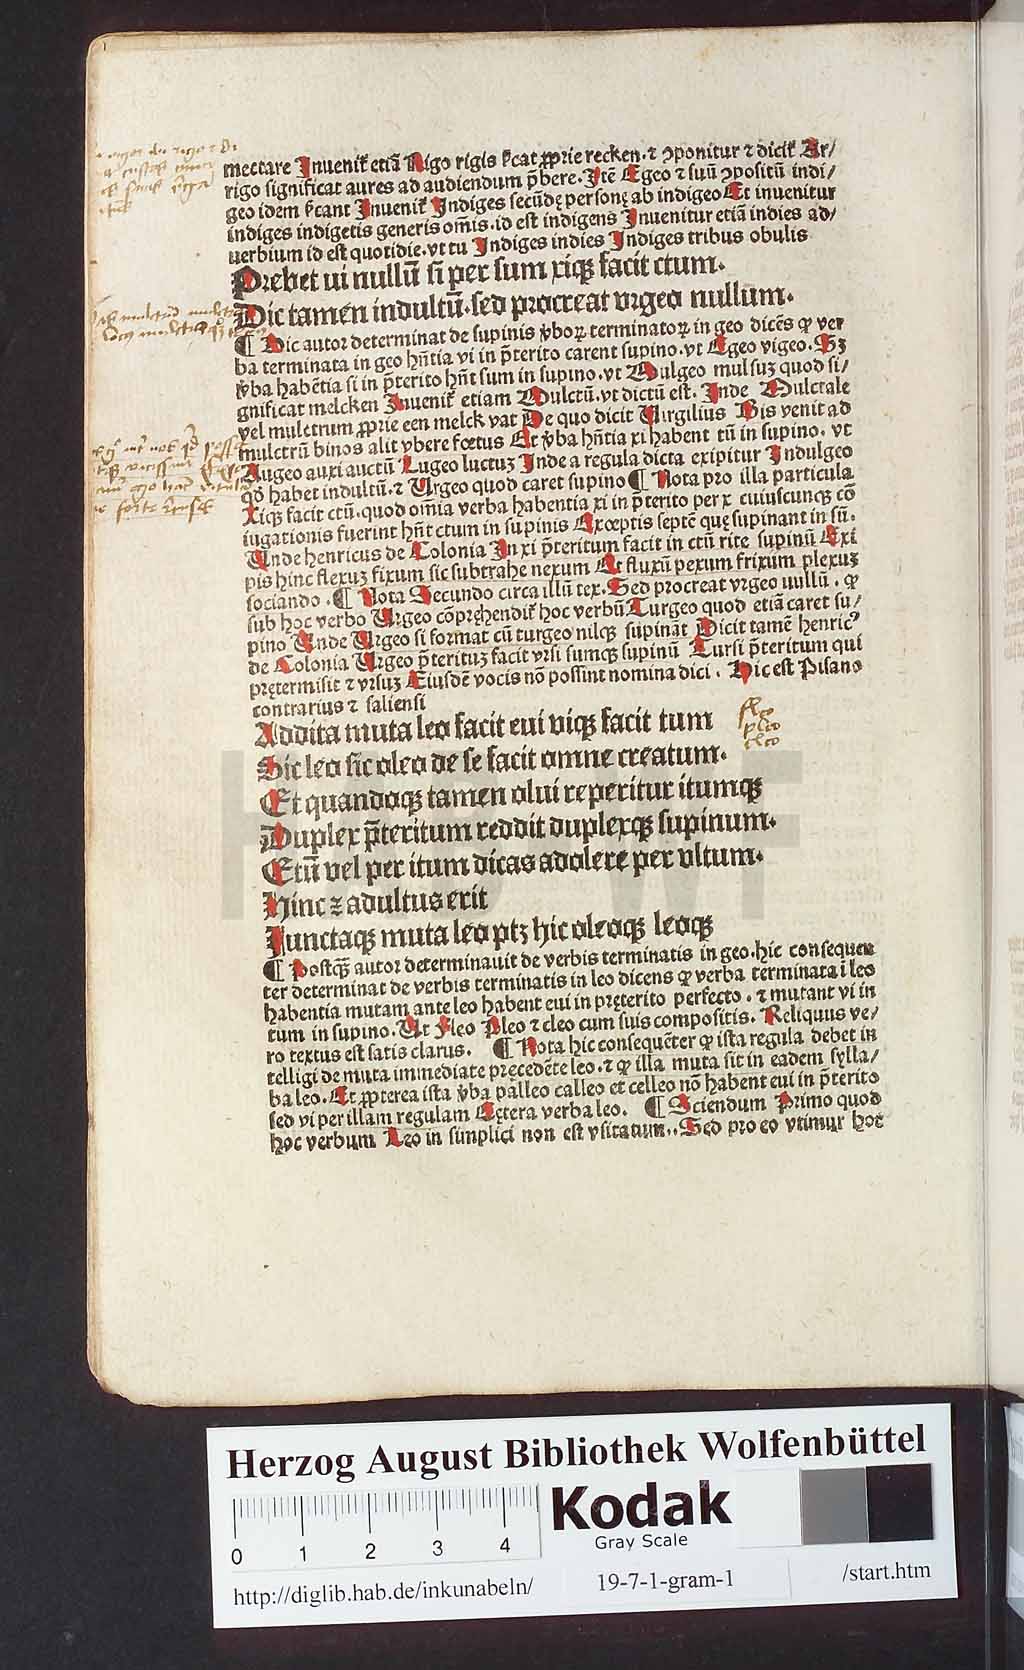 mectare Inuenit᷑ etiā Rigo rigis ſ̵cat ꝓprie recken. ⁊ ↄponitur ⁊ dicit᷑ Ar/
rigo ſignificat aures ad audiendum p̄bere. Itē Egeo ⁊ ſuū ↄpoſitū indi/
geo idem ſ̵cant Inuenit᷑ Indiges ſecūdę perſonę ab indigeo Et inuenitur
indiges indigetis generis om̄is. id eſt indigens Inuenitur etiā indies ad/
uerbium id eſt quotidie. vt tu Indiges indies Indiges tribus obulis
Prebet ui nullū ſi per ſum xiqꝫ facit ctum.
Dic tamen indultū. ſed procreat vrgeo nullum.
¶ Hic autor determinat de ſupinis v̵boꝝ terminatoꝝ in geo dicēs ꝙ ver
ba terminata in geo hn̄tia vi in p̄terito carent ſupino. vt Egeo vigeo. Sꝫ
v̵ba habētia ſi in p̄terito hn̄t ſum in ſupino. vt Mulgeo mulſuꝫ quod ſi/
gnificat melcken Inuenit᷑ etiam Mulctū. vt dictū eſt. Inde Mulctrale
vel muletrum ꝓprie een melck vat De quo dicit Uirgilius Bis venit ad
mulctrū binos alit vbere fœtus Et v̵ba hn̄tia xi habent tū in ſupino. vt
Augeo auxi auctū Lugeo luctuꝫ Inde a regula dicta exipitur Indulgeo
qd̄ habet indultū. ⁊ Urgeo quod caret ſupino ¶ Nota pro illa particula
Xiqꝫ facit ctū. quod om̄ia verba habentia xi in p̄terito per x cuiuſcunqꝫ cō
iugationis fuerint hn̄t ctum in ſupinis Exceptis ſeptē quę ſupinant in ſū.
Unde henricus de Colonia In xi p̄teritum facit in ctū rite ſupinū Exi
pis hinc flexuꝫ fixum ſic ſubtrahe nexum Et fluxū pexum frixum plexuꝫ
ſociando. ¶ Nota Secundo circa illū tex. Sed procreat vrgeo nullū. ꝙ
ſub hoc verbo Urgeo cōpręhendit᷑ hoc verbū Turgeo quod etiā caret ſu/
pino Unde Urgeo ſi format cū turgeo nilqꝫ ſupinat Dicit tamē henricꝰ
de Colonia Urgeo p̄terituꝫ facit vrſi ſumqꝫ ſupinū Turſi p̄teritum qui
prętermiſit ⁊ vrſuꝫ Eiuſdē vocis nō poſſint nomina dici. Hic eſt Piſano
contrarius ⁊ ſalienſi
Addita muta leo facit eui viqꝫ facit tum
fleo
pleo
cleo
Sic leo ſic oleo de ſe facit omne creatum.
Et quandoqꝫ tamen olui reperitur itumqꝫ
Duplex p̄teritum reddit duplexqꝫ ſupinum.
Etū vel per itum dicas adolere per vltum.
Hinc ⁊ adultus erit
Iunctaqꝫ muta leo ptꝫ hic oleoqꝫ leoqꝫ
¶ Poſtqꝫ̄ autor determinauit de verbis terminatis in geo. hic conſequen
ter determinat de verbis terminatis in leo dicens ꝙ verba terminata ī leo
habentia mutam ante leo habent eui in pręterito perfecto. ⁊ mutant vi in
tum in ſupino. Ut Fleo Pleo ⁊ cleo cum ſuis compoſitis. Reliquus ve/
ro textus eſt ſatis clarus. ¶ Nota hic conſequēter ꝙ iſta regula debet in
telligi de muta immediate pręcedēte leo. ⁊ ꝙ illa muta ſit in eadem ſylla/
ba leo. Et ꝓpterea iſta v̵ba palleo calleo et celleo nō habent eui in p̄terito
ſed vi per illam regulam Cętera verba leo. ¶ Sciendum Primo quod
hoc verbum Leo in ſimplici non eſt vſitatum.. Sed pro eo vtimur hoc
HAB WF
Herzog August Bibliothek Wolfenbüttel
Kodak
Gray Scale
0 1 2 3 4
http://diglib.hab.de/inkunabeln/ 19-7-1-gram-1 /start.htm